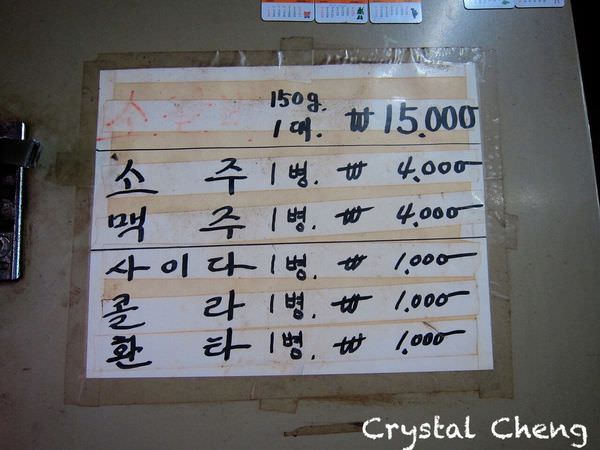 150g.
1대. ₩15.000
소 주 1병. ₩ 4.000
맥 주 1병. ₩ 4.000
사이다 1병. ₩ 1.000
콜 라 1병. ₩ 1.000
환 타 1병. ₩ 1.000
Crystal Cheng